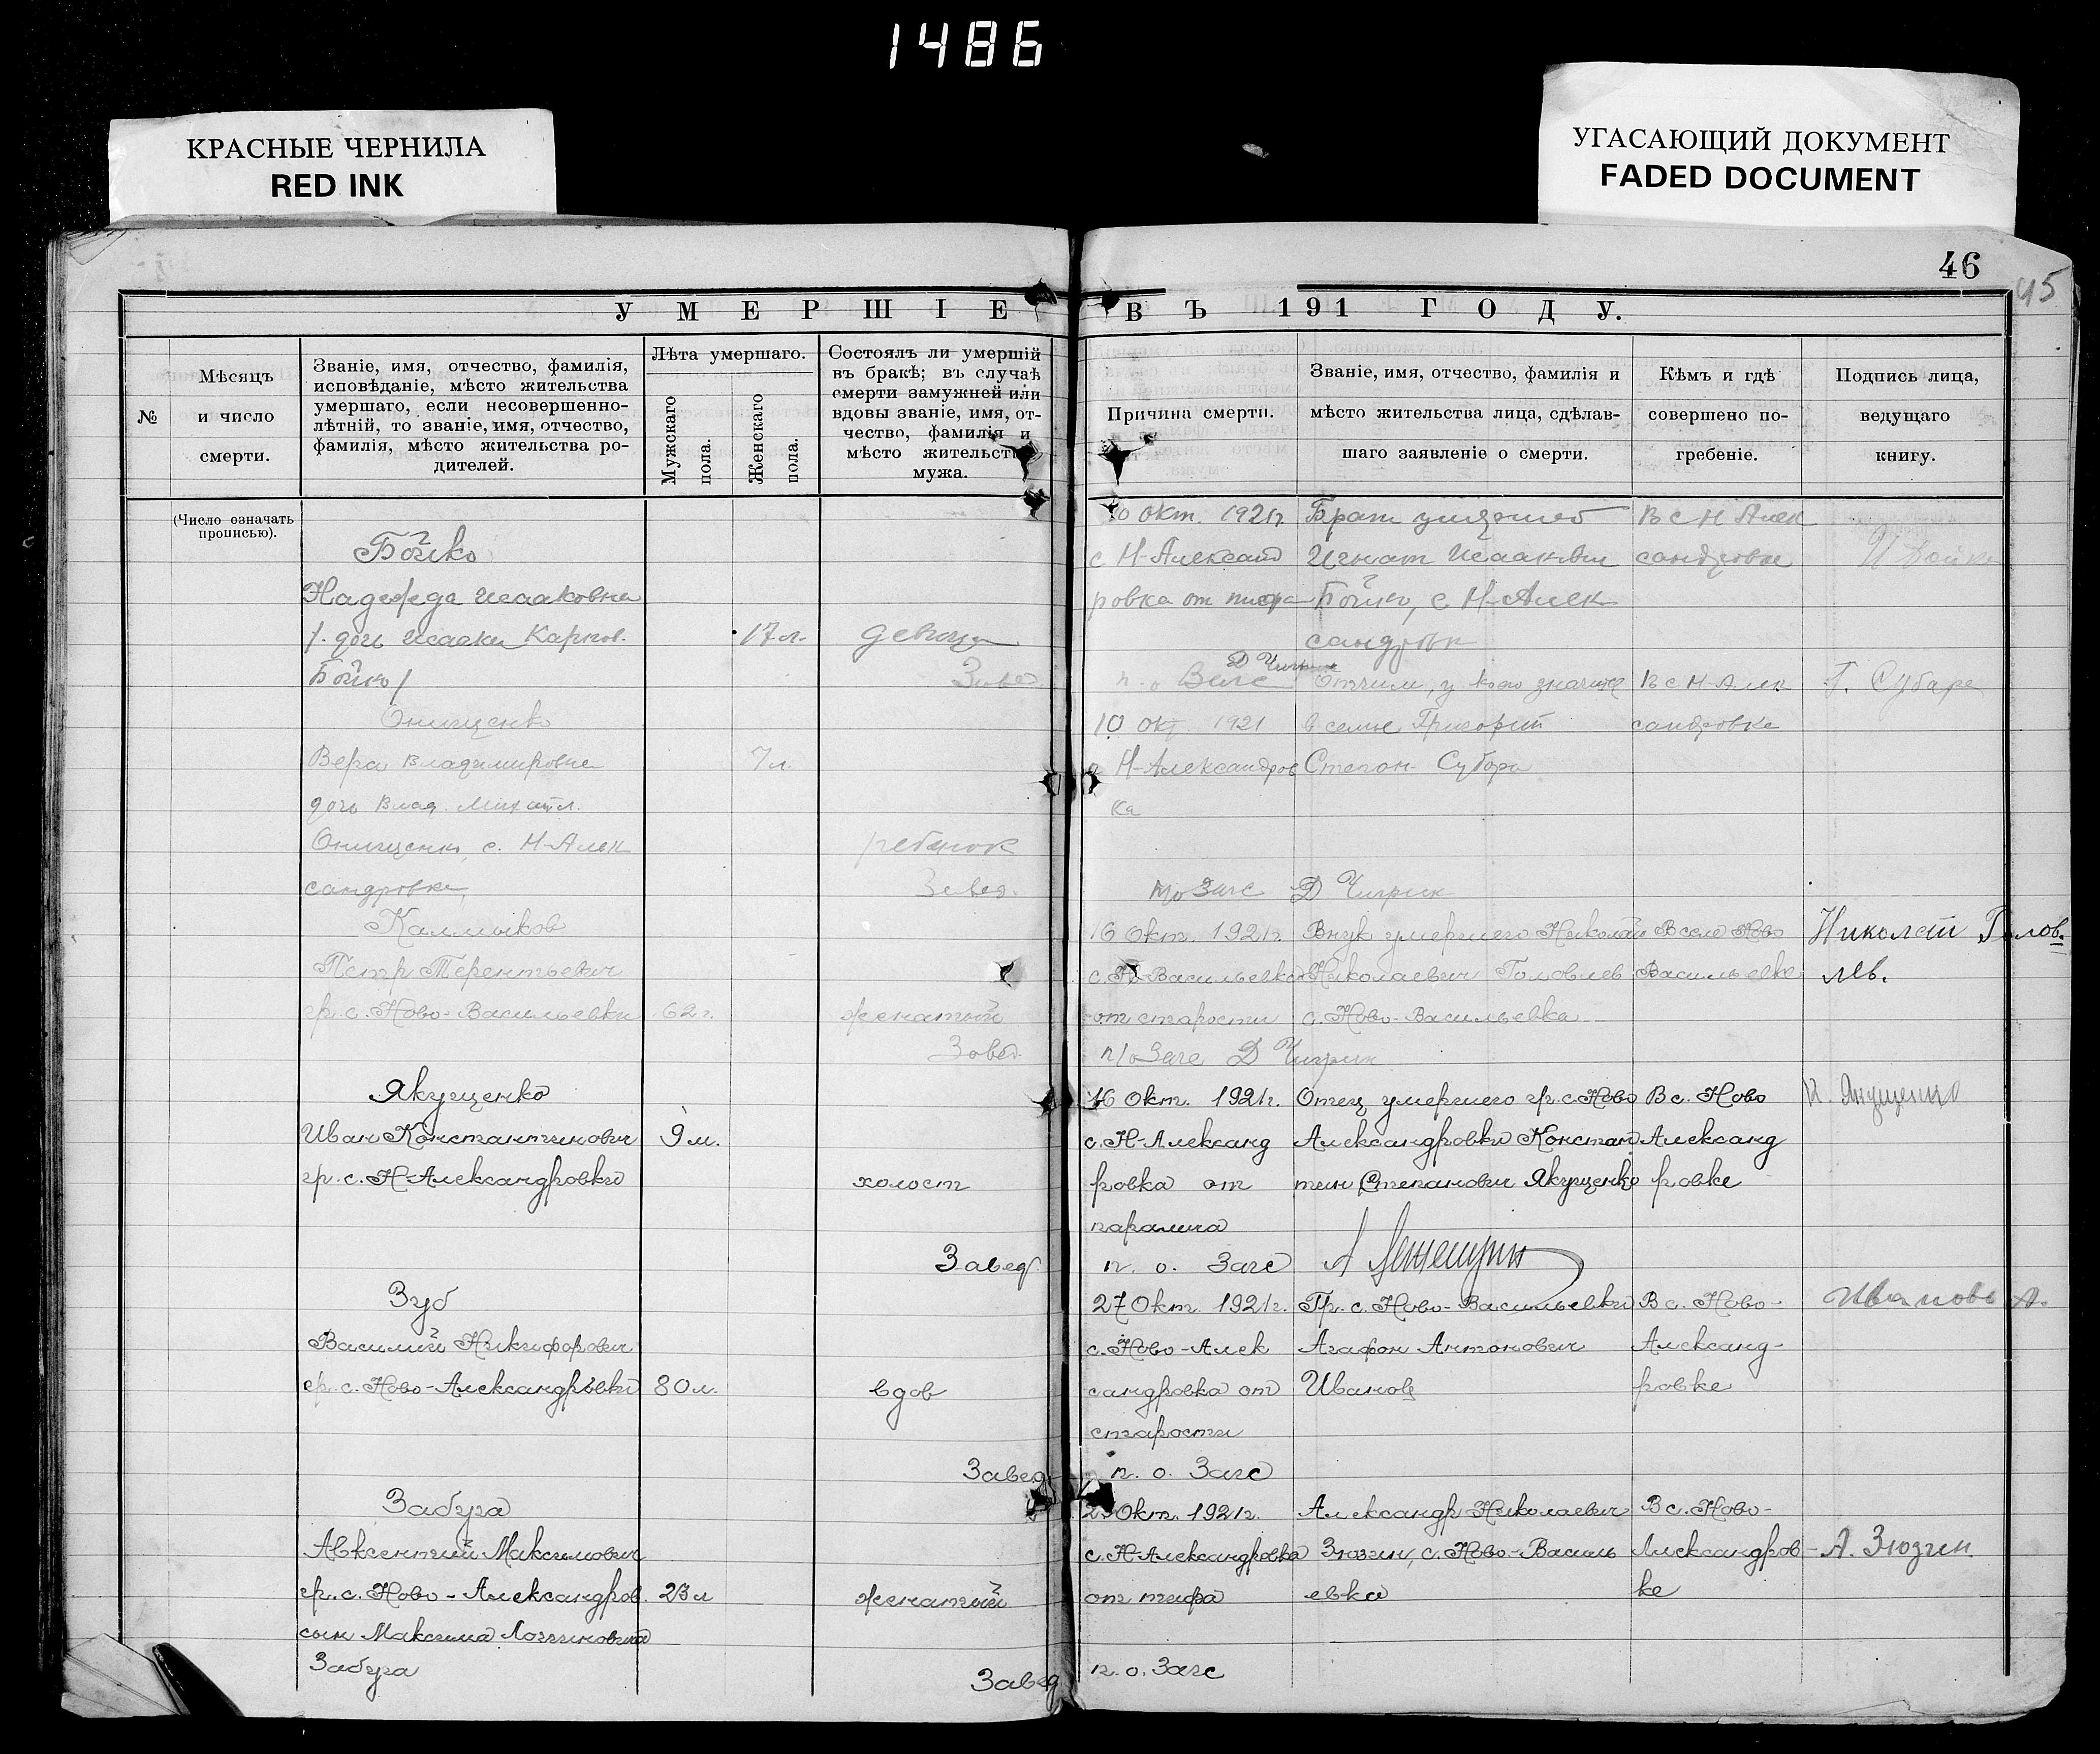 1486
КРАСНЫЕ ЧЕРНИЛА
RED INK
УГАСАЮЩИЙ ДОКУМЕНТ
FADED DOCUMENT
46
45
УМЕРШІЕ ВЪ 191 ГОДУ.
№
Мѣсяцъ
и число
смерти.
Званіе, имя, отчество, фамилія,
исповѣданіе, мѣсто жительства
умершаго, если несовершенно-
лѣтній, то званіе, имя, отчество,
фамилія, мѣсто жительства ро-
дителей.
Лѣта умершаго.
Мужскаго
пола.
Женскаго
пола.
Состоялъ ли умершій
въ бракѣ; въ случаѣ
смерти замужней или
вдовы званіе, имя, от-
чество, фамилія и
мѣсто жительства
мужа.
Причина смерти.
Званіе, имя, отчество, фамилія и
мѣсто жительства лица, сдѣлав-
шаго заявленіе о смерти.
Кѣмъ и гдѣ
совершено по-
гребеніе.
Подпись лица,
ведущаго
книгу.
(Число означать
прописью).
Бойко
Надежда Исааковна
/. дочь Исаака Карпов.
Бойко/
17 л.
девица
Завед
10 окт. 1921г.
с Н-Александ
ровка от тифа
Брат умершей
Игнат Исаакович
Бойко, с Н-Алек
сандровк
В с Н Алек
сандровке
И Бойко
п. о Загс
Д Чигрин
Онищенко
Вера Владимировна
дочь Влад. Михайл.
Онищенко, с. Н-Алек
сандровки,
7 л.
ребенок
Завед.
10 окт 1921
с Н-Александров
ка
Отчим, у кого
в семье Григорий
Степан. Субора
В с Н-Алек
сандровке
Г.
п/о Загс Д Чигрин
Калмыков
Петр Терентьевич
гр. с. Ново-Васильевки
62 г.
женатый
Завед.
16 Окт. 1921г.
с. Н-Васильевка
от старости
Внук умершего Николай
Николаевич Головлев
с. Ново-Васильевка
В селе Ново
Васильевке
Николай Голов-
лев.
п/о Загс Д Чигрин
Якущенко
Иван Константинович
гр. с. Н-Александровки
9 м.
холост
Завед.
16 Окт. 1921г.
с. Н-Александ
ровка от
паралича
Отец умершего гр. с. Ново
Александровки Констан
тин Степанович Якущенко
В с. Ново
Александ
ровке
К. Якущенко
п. о. Загс
Зуб
Василий Никифорович
гр. с. Ново-Александровки
80 л.
вдов
Завед.
27 Окт. 1921г.
с. Ново-Алек
сандровка от
старости
Гр. с. Ново-Васильевки
Агафон Антонович
Иванов
В с. Ново-
Александ-
ровке
Иванов А.
п. о. Загс
Забуга
Авксентий Максимович
гр. с. Ново-Александров.
сын Максима Логгиновича
Забуга
23 л
женатый
Завед
Окт. 1921г.
с. Н-Александровка
от тифа
Александр Николаевич
Зюзин, с. Ново-Василь
евка
В с. Ново-
Александров-
ке
А. Зюзин
п. о. Загс